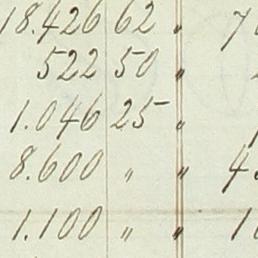 18.426 62 „ 7
522 50 „
1.046 25 „
8.600 „ „ 4
1.100 „ „ 1